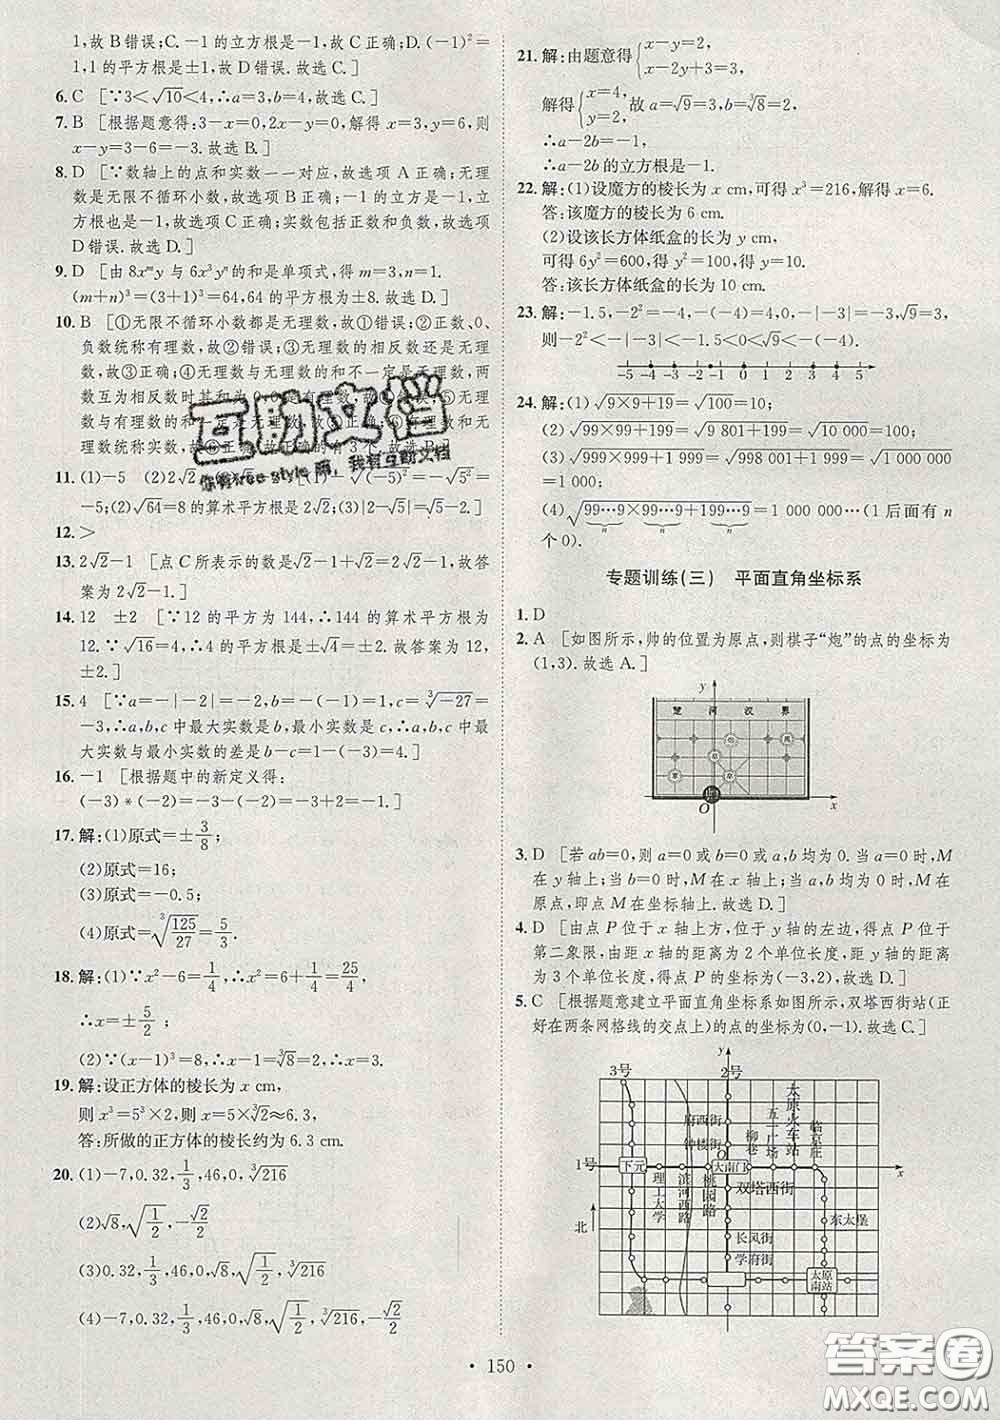 1,故B错误;C.-1的立方根是-1,故C正确;D.(-1)²=
1,1的平方根是±1,故D错误.故选C.]
6.C [∵3<√10<4,∴a=3,b=4,故选C.]
7.B [根据题意得:3-x=0,2x-y=0,解得x=3,y=6,则
x-y=3-6=-3.故选B.]
8.D [∵数轴上的点和实数一一对应,故选项A正确;无理
数是无限不循环小数,故选项B正确;一个数有立方根,
立方根也是唯一的,故选项C正确;实数包括正数和负数,故选项
D错误.故选D.]
9.D [由8xᵐy与6x³yⁿ的和是单项式,得m=3,n=1.
(m+n)³=(3+1)³=64,64的平方根为±8.故选D.]
10.B [①无限不循环小数都是无理数,故①错误;②正数、0、
负数统称有理数,故②错误;③无理数的相反数还是无理
数,故③正确;④无理数与无理数的和不一定是无理数,两
数互为相反数时其和为0,0是有理数,故④错误;⑤无理
数与有理数的和一定是无理数,故⑤正确;⑥有理数与无
理数统称实数,故⑥正确.故正确的有3个.故选B.]
11.(1)-5 (2)2√2 (3)√5-2
=-5;(2)√64=8的算术平方根是2√2;(3)|2-√5|=√5-2.]
12.>
13.2√2-1 [点C所表示的数是√2-1+√2=2√2-1.故答
案为2√2-1.]
14.12 ±2 [∵12的平方为144,∴144的算术平方根为
12.∵√16=4,∴4的平方根是±√4=±2.故答案为12,
±2.]
15.4 [∵a=-|-2|=-2,b=-(-1)=1,c=∛-27=
-3,∴a,b,c中最大实数是b,最小实数是c,∴a,b,c中最
大实数与最小实数的差是b-c=1-(-3)=4.]
16.-1 [根据题中的新定义得:
(-3)*(-2)=-3-(-2)=-3+2=-1.]
17.解:(1)原式=±3/8;
(2)原式=16;
(3)原式=-0.5;
(4)原式=∛(125/27)=5/3.
18.解:(1)∵x²-6=1/4,∴x²=6+1/4=25/4,
∴x=±5/2;
(2)∵(x-1)³=8,∴x-1=∛8=2,∴x=3.
19.解:设正方体的棱长为x cm,
则x³=5³×2,则x=5×∛2≈6.3,
答:所做的正方体的棱长约为6.3 cm.
20.(1)-7,0.32,1/3,46,0,∛216
(2)√8,√(1/2),-√2/2
(3)0.32,1/3,46,0,√8,√(1/2),∛216
(4)-7,0.32,1/3,46,0,√8,√(1/2),∛216,-√2/2
21.解:由题意得{x-y=2, x-2y+3=3,
解得{x=4, y=2, 故a=√9=3,b=∛8=2,
∴a-2b=-1,
∴a-2b的立方根是-1.
22.解:(1)设魔方的棱长为x cm,可得x³=216,解得x=6.
答:该魔方的棱长为6 cm.
(2)设该长方体纸盒的长为y cm,
可得6y²=600,得y²=100,得y=10.
答:该长方体纸盒的长为10 cm.
23.解:-1.5,-2²=-4,-(-4)=4,0,-|-3|=-3,√9=3,
则-2²<-|-3|<-1.5<0<√9<-(-4).
-5 -4 -3 -2 -1 0 1 2 3 4 5
24.解:(1)√(9×9+19)=√100=10;
(2)√(99×99+199)=√(9 801+199)=√(10 000)=100;
(3)√(999×999+1 999)=√(998 001+1 999)=√(1 000 000)=
1 000;
(4)√(99…9×99…9+199…9)=1 000 000…(1后面有n
n n n
个0).
专题训练(三) 平面直角坐标系
1.D
2.A [如图所示,帅的位置为原点,则棋子“炮”的点的坐标为
(1,3).故选A.]
y
楚 河 汉 界
O x
3.D [若ab=0,则a=0或b=0或a,b均为0.当a=0,M
在y轴上;当b=0,M在x轴上;当a,b均为0,M在
原点,即点M在坐标轴上.故选D.]
4.D [由点P位于x轴上方,位于y轴的左边,得点P位于
第二象限,由距x轴的距离为2个单位长度,y轴的距离
为3个单位长度,得点P的坐标为(-3,2),故选D.]
5.C [根据题意建立平面直角坐标系如图所示,双塔西街站(正
好在两条网格线的交点上)的点的坐标为(0,-1).故选C.]
y
3号 2号
府西街
钟楼街
柳巷
五一广场
太原火车站
临泉庄
1号 下元 O 大南门 x
理工大学
滨河西路
桃园路
双塔西街
北
东太堡
长风街
学府街
太原南站
• 150 •
互助文档
你有free style嘛，我有互助文档
答案圈
MXQE.COM